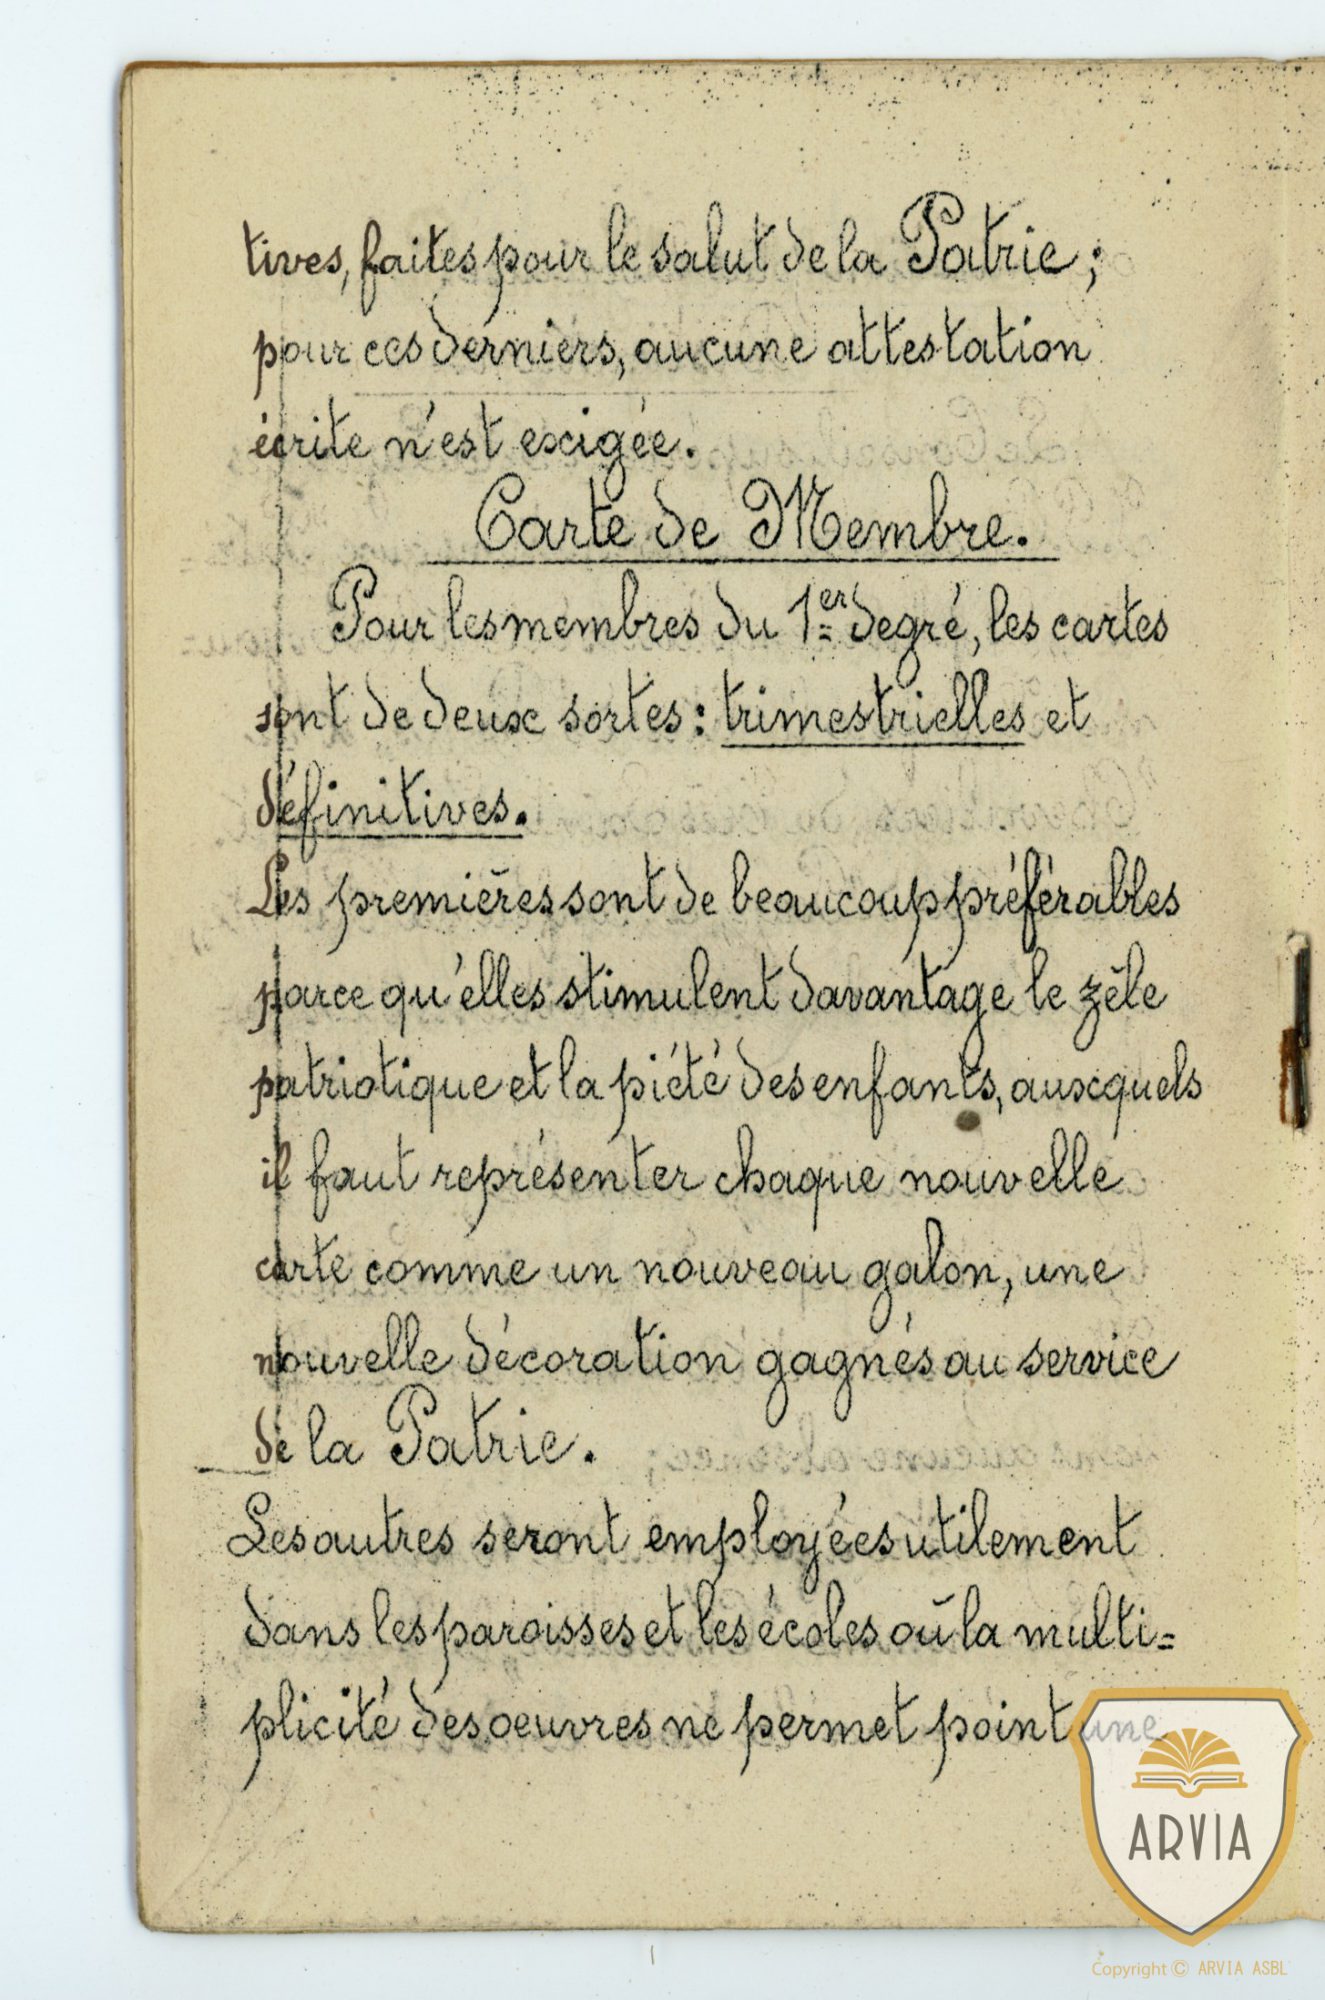 tives, faites pour le salut de la Patrie;
pour ces derniers, aucune attestation
écrite n'est exigée.
Carte de Membre.
Pour les membres du 1er degré, les cartes
sont de deux sortes: trimestrielles et
définitives.
Les premières sont de beaucoup préférables
parce qu'elles stimulent davantage le zèle
patriotique et la piété des enfants, auxquels
il faut représenter chaque nouvelle
carte comme un nouveau galon, une
nouvelle décoration gagnés au service
de la Patrie.
Les autres seront employées utilement
dans les paroisses et les écoles où la multi=
plicité des oeuvres ne permet point une
ARVIA
Copyright © ARVIA ASBL